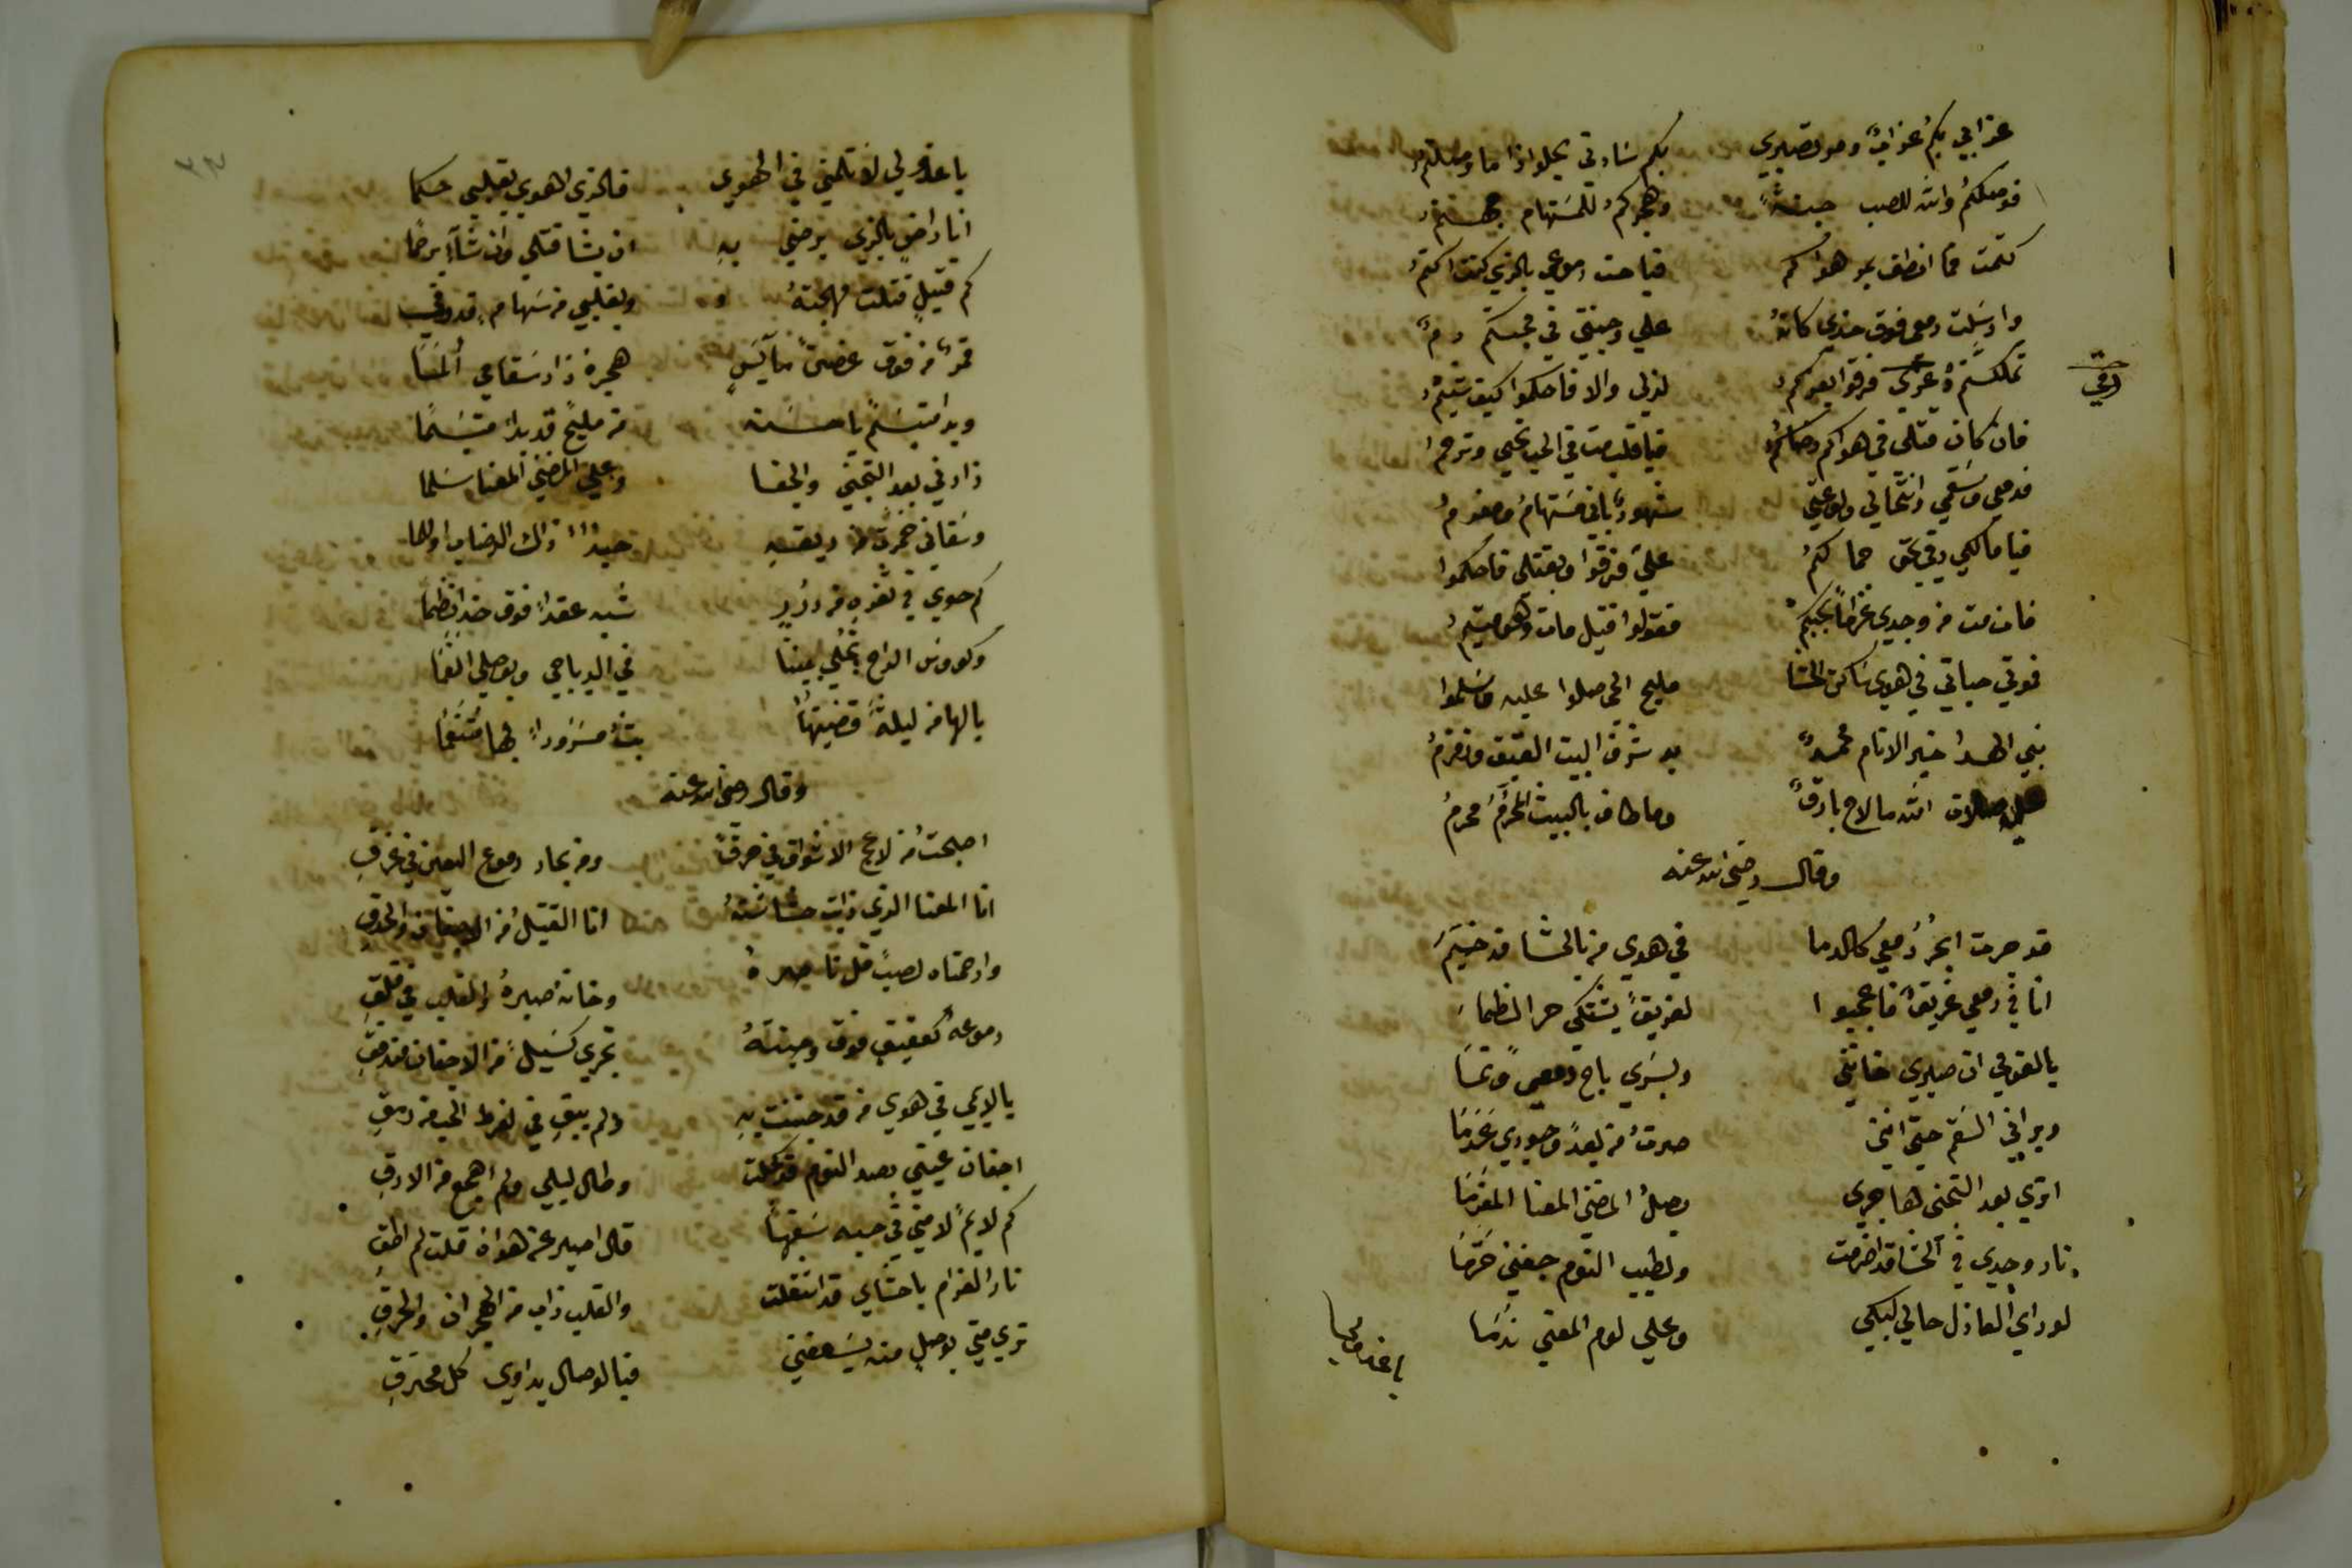 عذابي بكم عذابٌ ومر تصبري بكم سادتي يحلو اذا ما وصلتمُ
فوصلكمُ والله للصب جنةً وهجركمُ للمستهام جهنمُ
كتمت فما انطق بمر هواكم فباحت دموعي بالذي كنت اكتمُ
وارسلت دمعي فوق خدي كانهُ علي وجنتي في محبتكم دمٌ
تملكتمُ رقي فرقوا لعبدكم لذلي والا فاحكموا كيف شيتمُ
رقي
فان كان قتلي في هواكم رضاكمُ فيا قلب مت في الحب تحيي وترحمُ
فدمعي وسقمي وانتحالي ولوعتي شهودٌ باني مستهامُ ومغرمُ
فيا مالكي رقي بحق حماكمُ عليَّ فرقوا وبقتلي فاحكموا
فان مت من وجدي غراماً بحبكم فقولوا قتيل مات وهو متيمُ
فوتي حياتي في هوي ساكن الحشا مليح الحي صلوا عليه وسلموا
نبي الهدا خير الانام محمدٌ به شرف البيت العتيق وزمزمُ
عليه صلات الله ما لاح بارقٌ وما طاف بالبيت المحرَّم محرمُ
وقال رضي الله عنه
قد جرت ابحُر دمعي كالدما في هوي من بالحشا قد خيَّمَ
انا في دمعي غريقٌ فاعجبوا لغريقٍ يشتكي حر الظماَ
يالقومي ان صبري خانني وبسري باح دمعي ونما
وبراني السقم حتي انني صرتُ من بعد وجودي عدما
اتري بعد التجني هاجري يصلُ المضني المعنا المغرما
نار وجدي في الحشا قد اضرمت ولطيب النوم جفني حرَّما
لو راي العاذل حالي لبكي وعلي لوم المعني ندما
يا عذولي
يا عذولي لا تلمني في الهوي فالذي اهوي بقلبي حكما
انا راضٍ بالذي يرضي بهِ ان يشا قتلي وان شآء يرحما
كم قتيلٍ قتلت مهجتهُ وبقلبي من سهامه قد رمي
قمرٌ من فوق غصنٍ مآيسٍ هجره زاد سقامي ألمَا
وبدا مبتسمٌ يا حسنه من مليحٍ قد بدا مبتسمًا
زارني بعد التجني والجفا وعلي المضني المعنا سلما
وسقاني خمرةً من ريقهِ حبذا ذاك الرضاب اولما
كم حوي في ثغرهِ من دررٍ شبه عقداً فوق خد انظما
وكووس الراح تجلي بيننا في الدياجي وبوصلي انعما
يالها من ليلةً قضيتها بتُّ مسروراً بها منعَّما
وقال رضي الله عنه
اصبحتُ من لاعج الاشواق في حرقٍ ومن بحار دموع العين في غرقِ
انا المعنا الذي ذابت حشاشتهُ انا القتيلُ من الاجفان والحدقِ
وارحمتاه لصبٍ قل ناصرهُ وخانه صبرهُ والقلب في قلقِ
دموعه كعقيقٍ فوق وجنتهُ تجري كسيلٍ من الاجفان مندفقِ
يا لايمي في هوي من قد جننت بهِ ولم يبق في لفرط الحب من رمقِ
اجفان عيني بصد النوم قد كحلت وطال ليلي ولم اهجع من الارقِ
كم لايمٍ لامني في حبه سفهاً قال اصبر عن هواه قلت لم اطقِ
نار الغرام باحشاي قد اشتعلت والقلب ذاب من الهجران والحرقِ
تري متي بوصلٍ منه يسعفني فبالوصال يداوي كل محترقِ